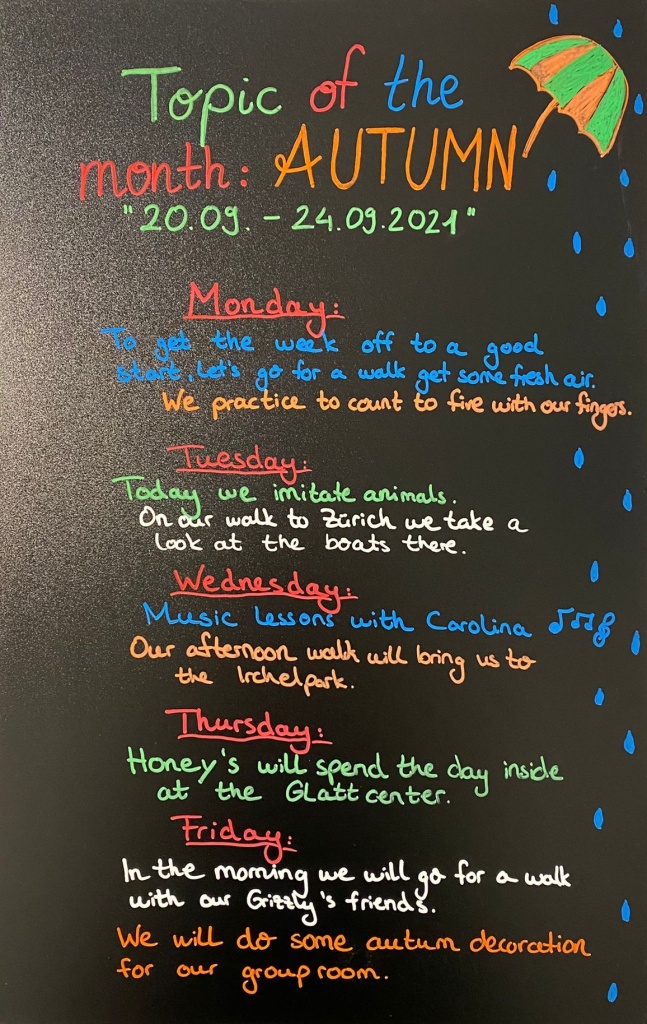 Topic of the
month: AUTUMN
"20.09. - 24.09.2021"
Monday:
To get the week off to a good
start. Let's go for a walk get some fresh air.
We practice to count to five with our fingers.
Tuesday:
Today we imitate animals.
On our walk to Zürich we take a
look at the boats there.
Wednesday:
Music Lessons with Carolina
Our afternoon walk will bring us to
the Irchelpark.
Thursday:
Honey's will spend the day inside
at the Glattcenter.
Friday:
In the morning we will go for a walk
with our Grizzly's friends.
We will do some autum decoration
for our group room.